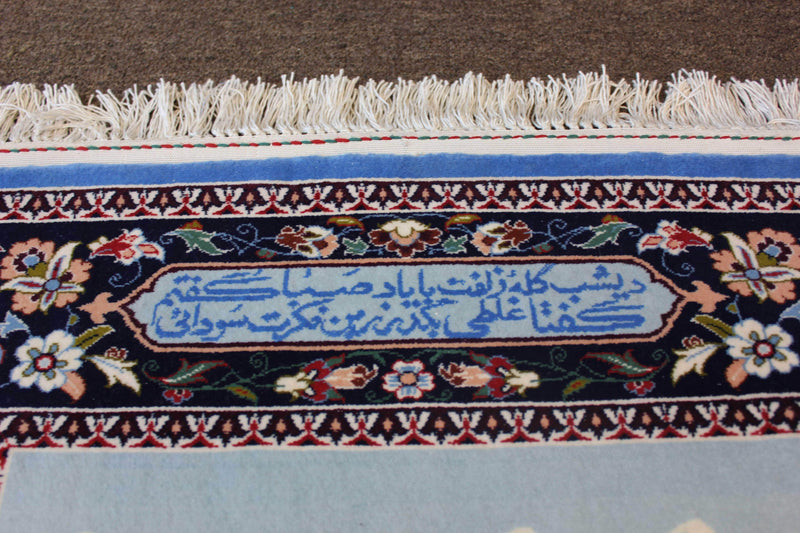 دیشب گله زلفت با باد صبا گفتم
گفتا غلطی بگذر زین فکرت سودائی